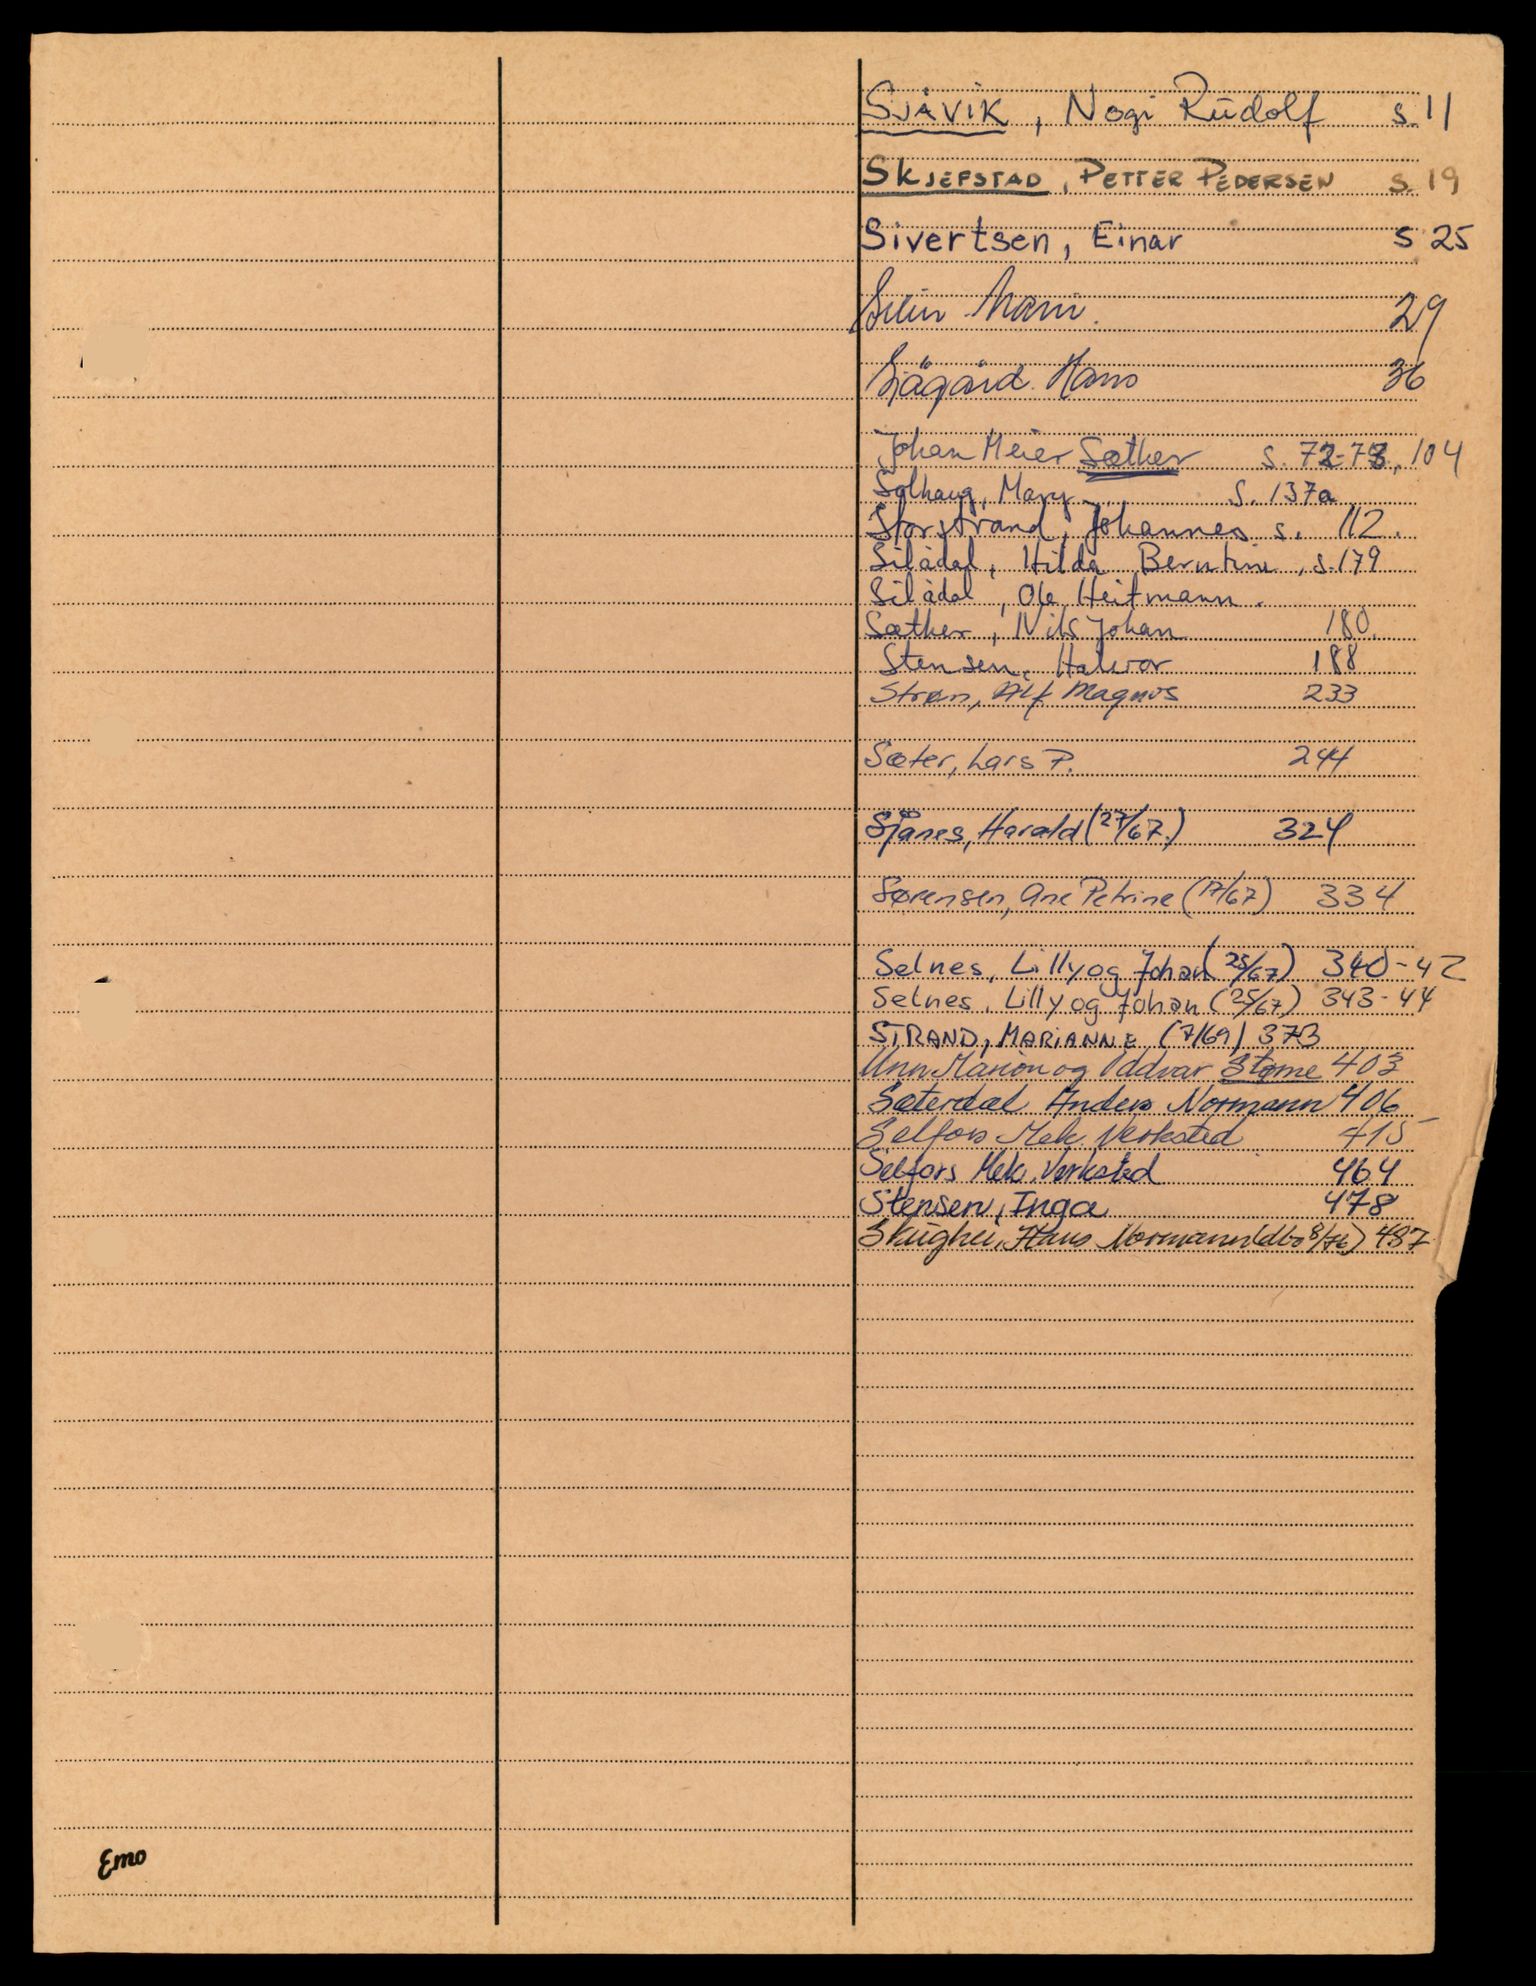 SJÅVIK, Nogi Rudolf s. 11
SKJEFSTAD, PETTER PEDERSEN s. 19
Sivertsen, Einar s 25
29
Hans 36
Johan Meier Sæther s. 72-73, 104
Solhaug, Mary s. 137a
Storstrand, Johannes s. 112.
Silådal, Hilda Berntine, s. 179
Silådal, Ole Heitmann.
Sæther, Nils Johan 180.
Stensen, Halvor 188
Strøm, Alf Magnus 233
Sæter, Lars P. 244
Sjånes, Harald (27/67.) 324
Sørensen, Ane Petrine (17/67) 334
Selnes, Lilly og Johan (25/67) 340-42
Selnes, Lilly og Johan (25/67) 343-44
STRAND, MARIANNE (7/69) 373
Unn Marion og Oddvar Støme 403
Sæterdal Anders Normann 406
Selfors Mek. Verksted 415
Selfors Mek. Verksted 464
Stensen, Inga 478
Hans Normann (dbo 8/76) 487
Emo